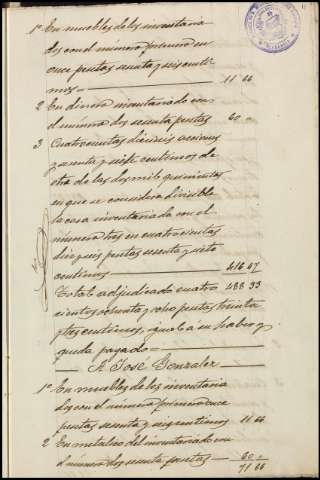 1º En muebles de los inventaria
dos con el número primero en
once pesetas sesenta y seis cénti
mos — 11 66
2 En dinero inventariado con
el número dos sesenta pesetas 60 "
3 Cuatrocientas dieciseis acciones
y sesenta y siete centimos de
otra de las dos mil quinientas
en que se considera divisible
la casa inventariada con el
número tres en cuatrocientas
diez y seis pesetas sesenta y siete
centimos — 416 67
Total adjudicado cuatro 488 33
cientos ochenta y ocho pesetas treinta
y tres centimos, igual á su haber y
queda pagado —
— A José Gonzalez —
1º En muebles de los inventaria
dos con el número primero once
pesetas sesenta y seis centimos 11 66
2 En metalico del inventariado con
el número dos sesenta pesetas — 60 "
71 66